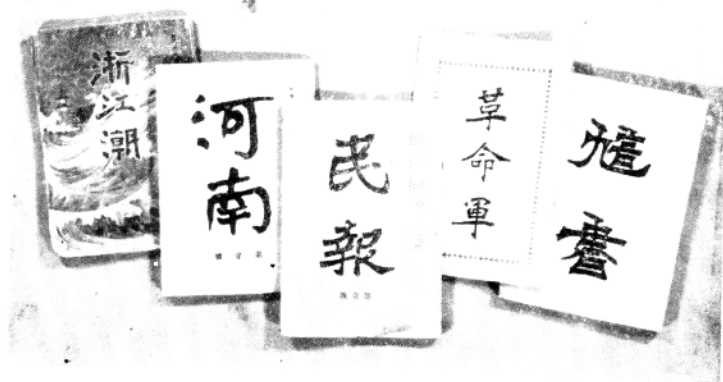 浙江潮
河南
第壹號
民報
革命軍
訄書